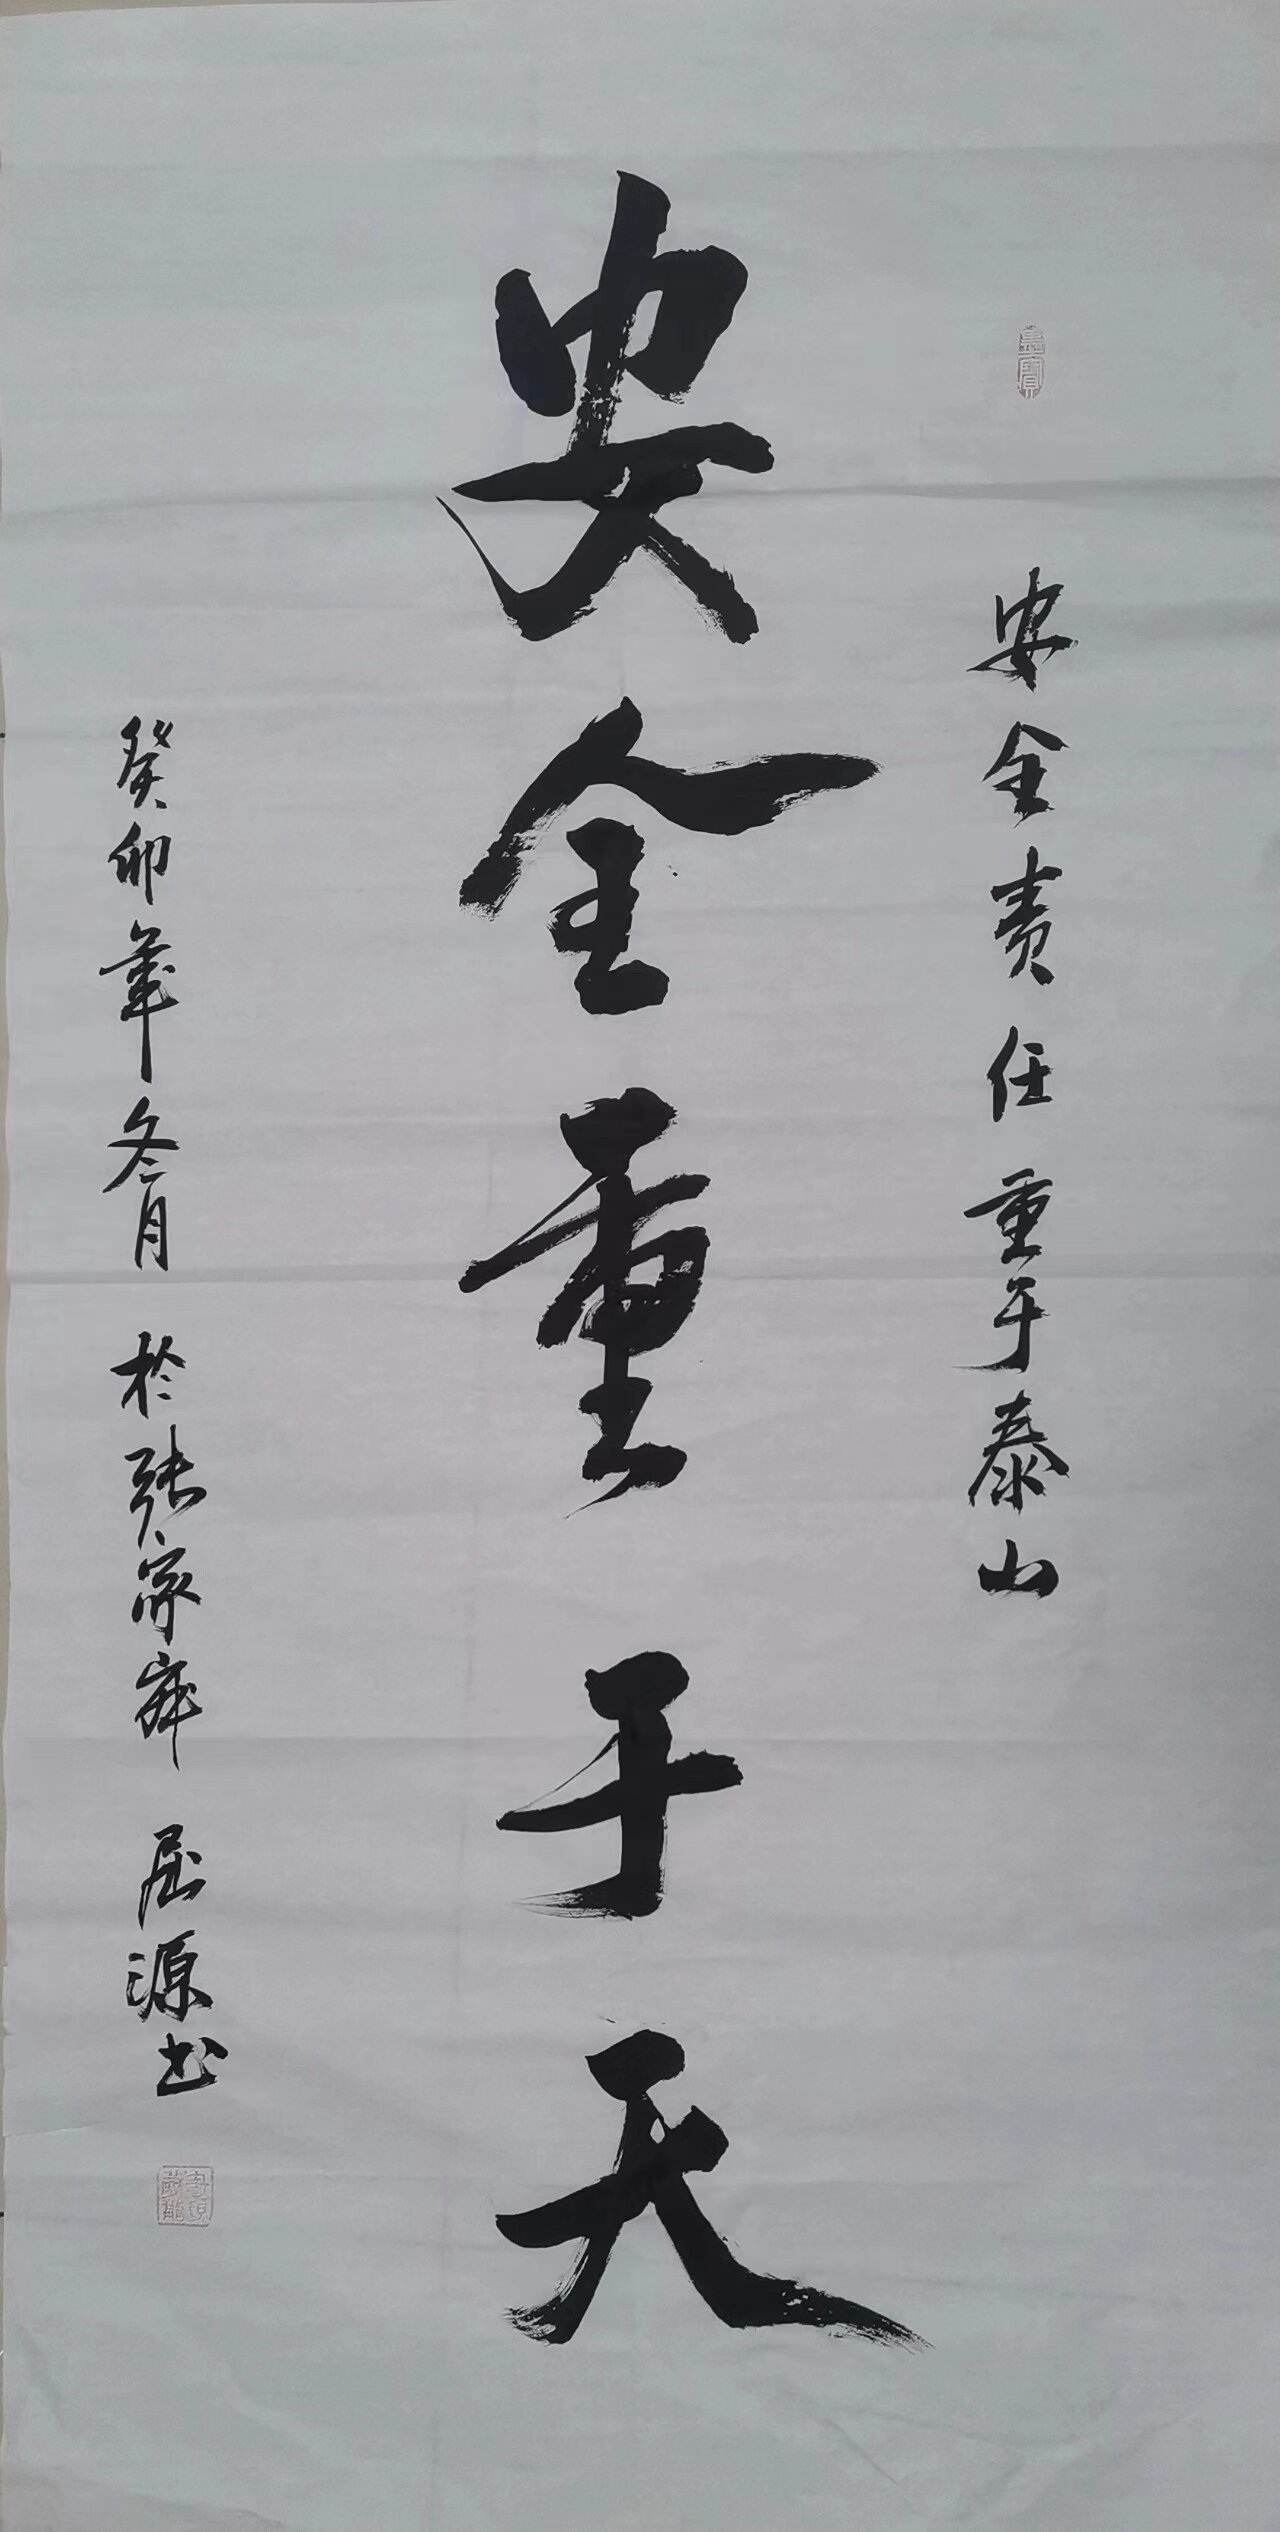 安全责任重于泰山
安全重于天
癸卯年冬月 於张家界 屈源书